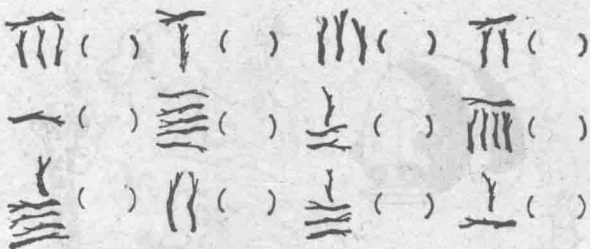 ( ) ( ) ( ) ( )
( ) ( ) ( ) ( )
( ) ( ) ( ) ( )